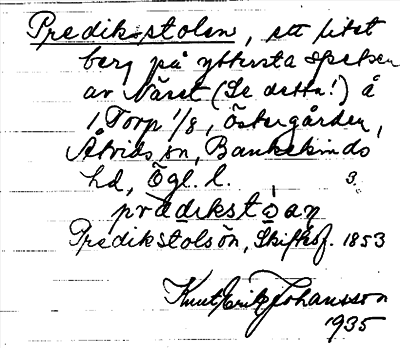 Predikstolen, ett litet
berg på yttersta spetsen
av Näset (Se detta!) å
1 Torp 1/8, Östergården,
Åtvids sn, Bankekinds
hd, Ögl. l. 3.
prädikstὼan
Predikstolsön, Skiftesk. 1853
Knut Erik Johansson
1935